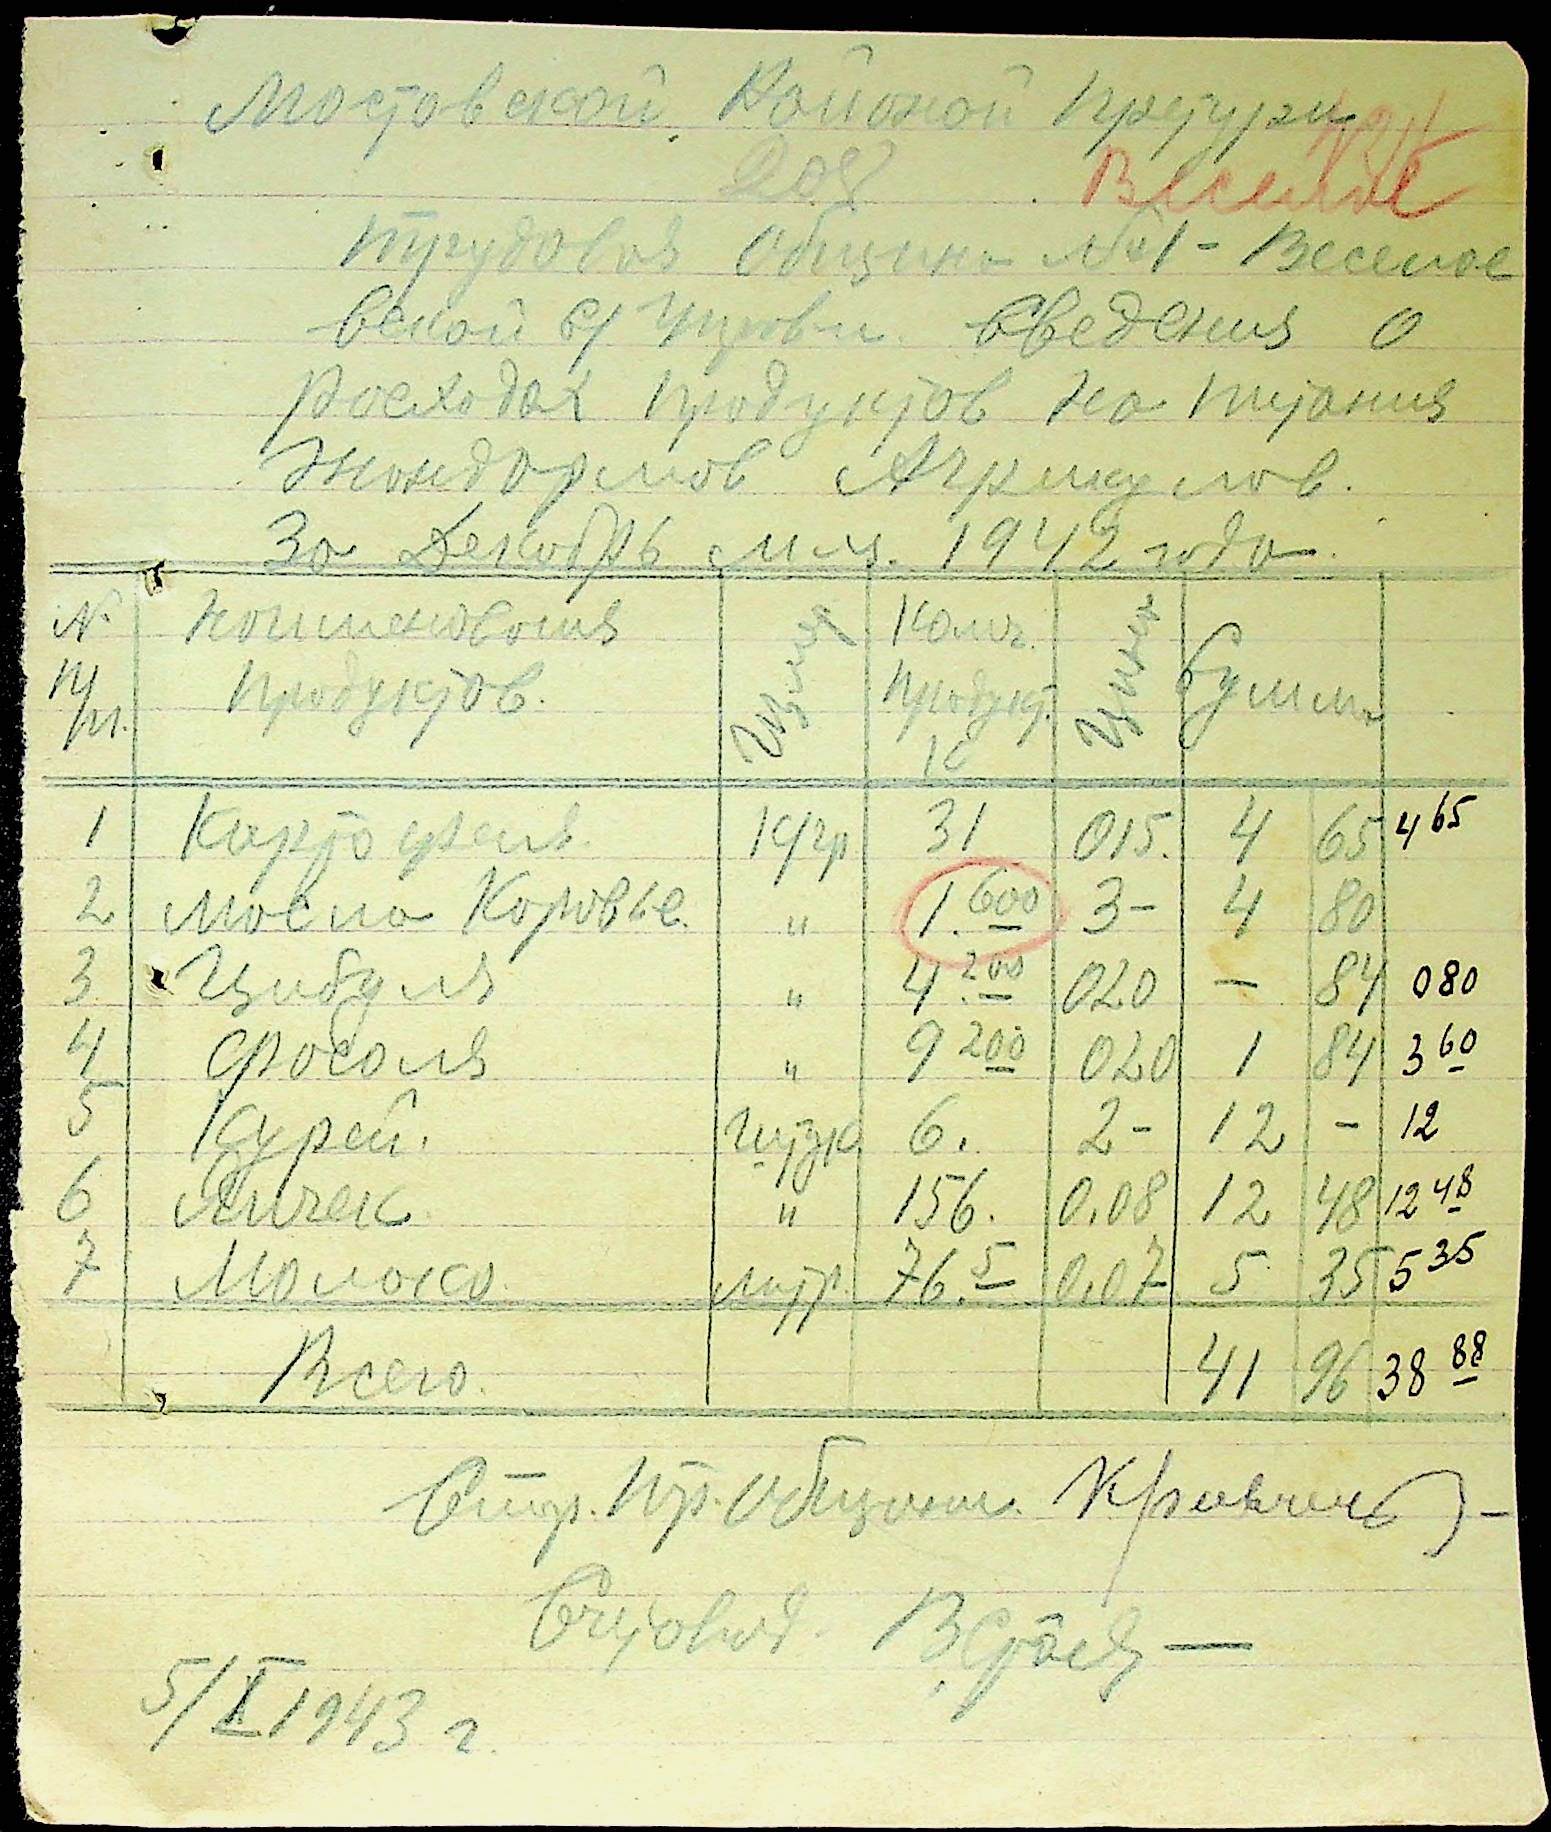 Мостовской Районой претури
Веселое
Трудовоя община №1 - Веселов
вской с/управи. Сведения о
росходах продуктов на питания
жондормов Агрикулов.
За декабрь м-ц. 1942 года.
№ п/п. Наименования продуктов. Колич. продукт. К Цена Сумма
1 Картофеля. Кгр 31 015. 4 65 4 65
2 Мосло Коровье. " 1.600 3- 4 80
3 Цибуля " 4.200 020 - 84 080
4 Фосоля " 9 200 020 1 84 3 60
5 Курей. штук 6. 2- 12 - 12
6 Яичек " 156. 0.08 12 48 12 48
7 Молоко литр. 76.5 0.07 5 35 5 35
Всего. 41 96 38 88
Стар. Тр. общины
Счетовод.
5/I 1943 г.